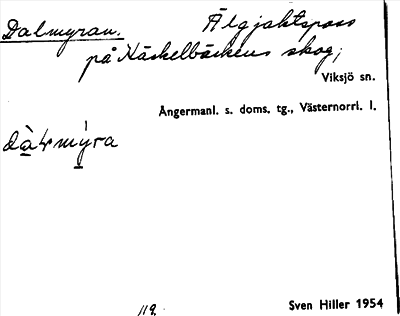 Dalmyran. Älgjaktspass
på Näskelbäckens skog;
Viksjö sn.
Ångermanl. s. doms. tg., Västernorrl. l.
dàʟmýra
119.
Sven Hiller 1954